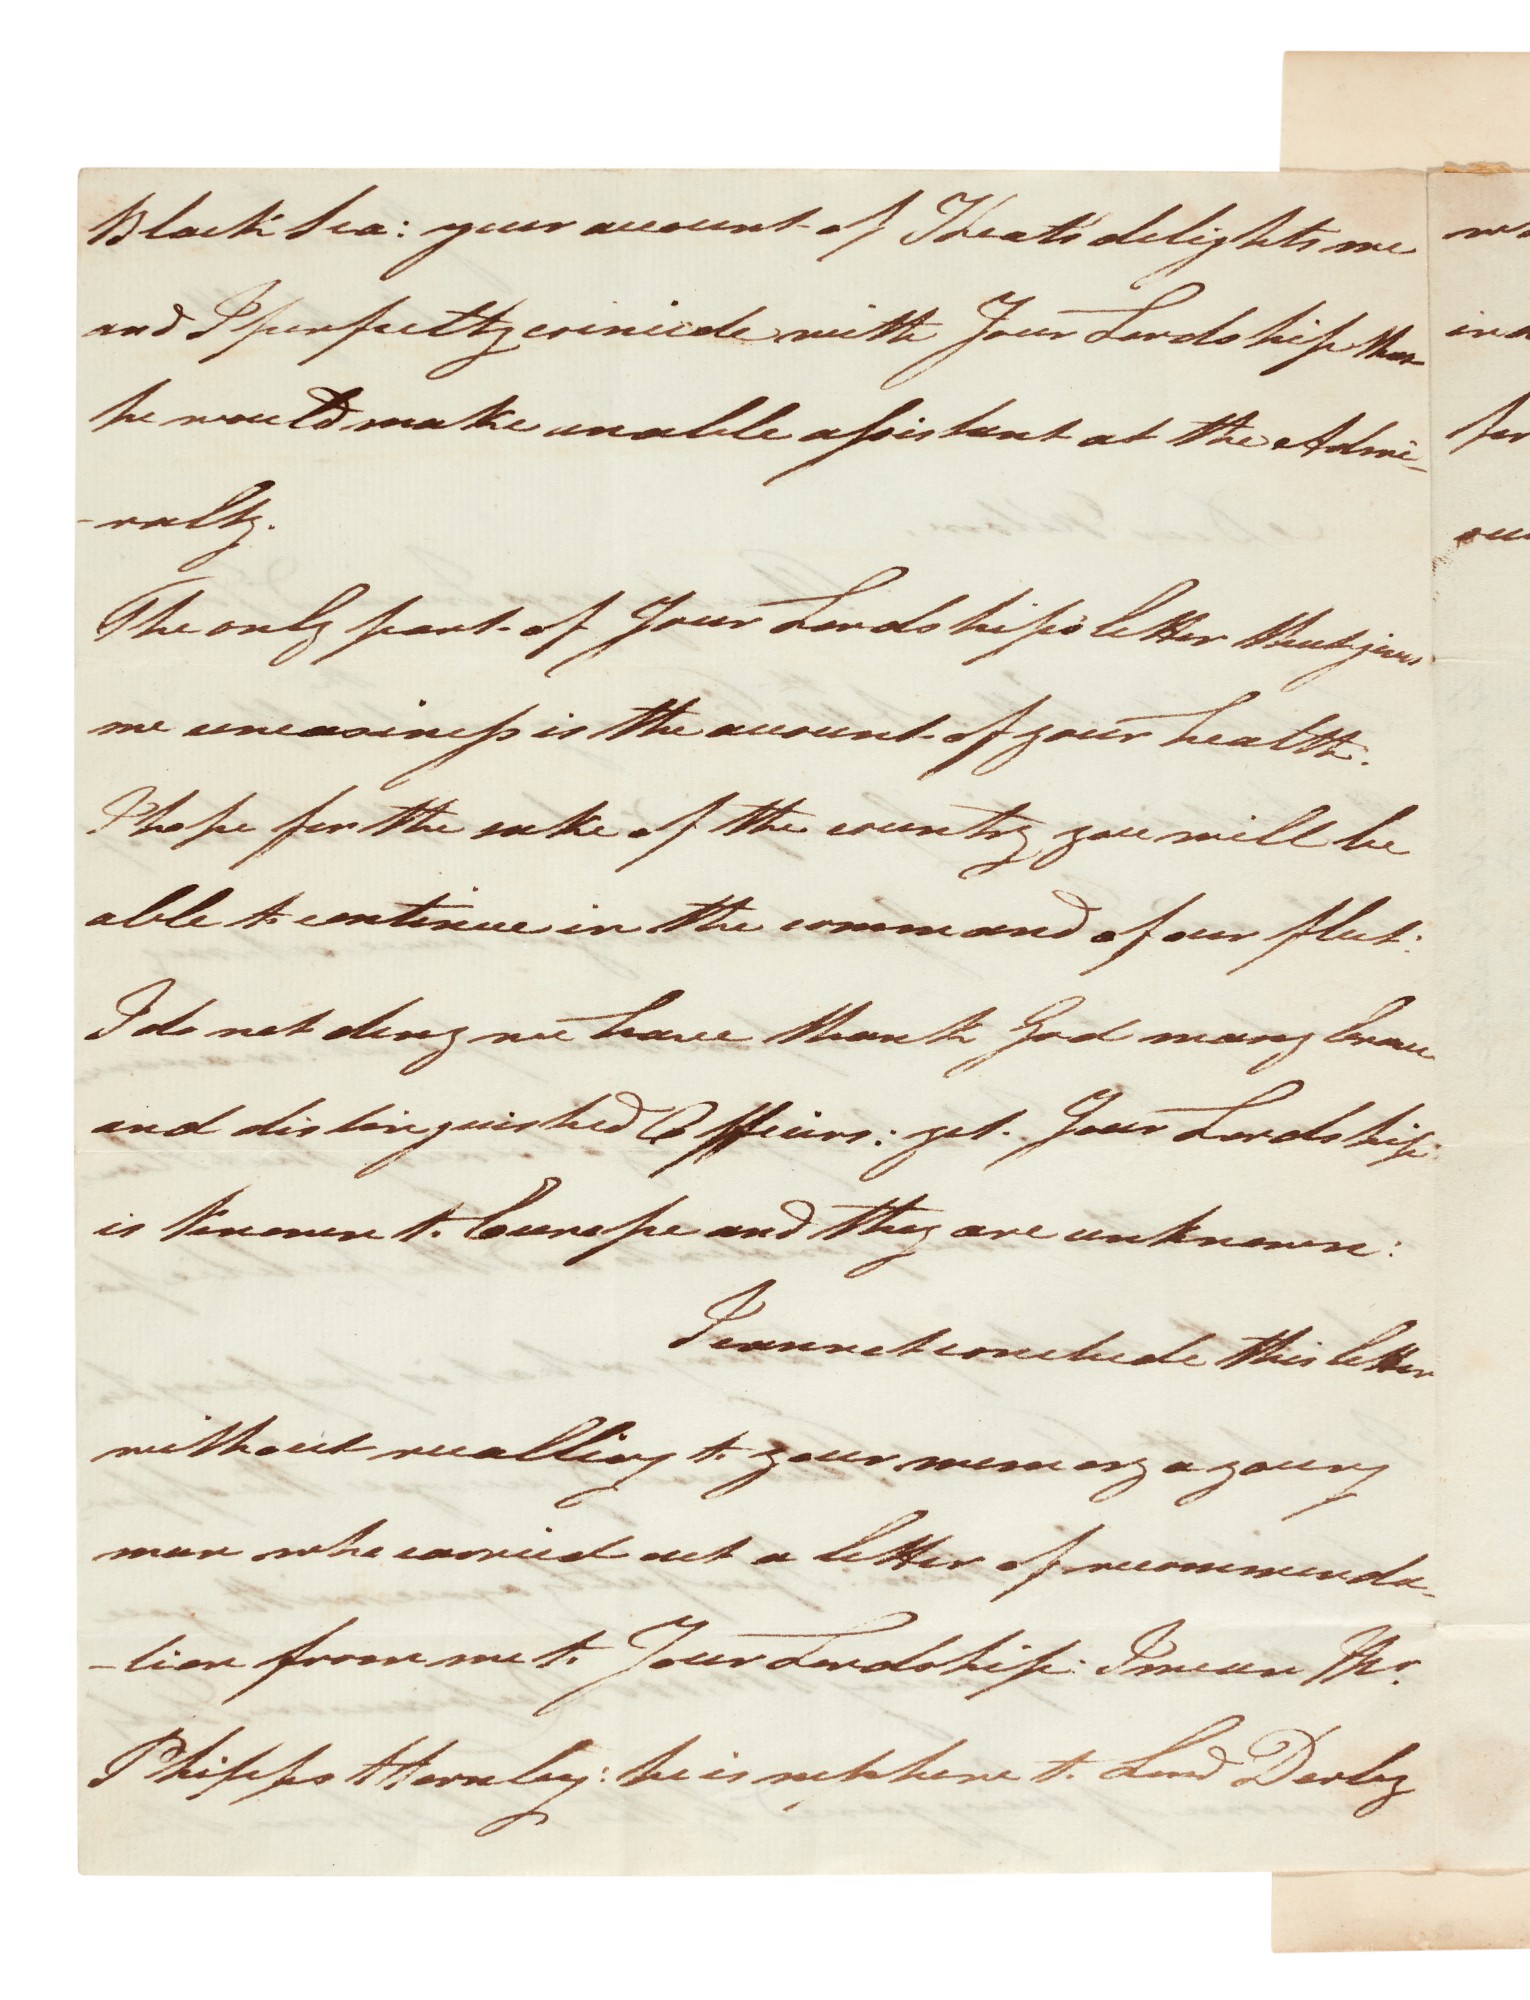 Black Sea: your account of Keats delights me
and I perfectly coincide with Your Lordship that
he would make an able assistant at the Admi-
-ralty.
The only part of Your Lordship's letter that gives
me uneasiness is the account of your health.
I hope for the sake of the country you will be
able to continue in the command of our fleet:
I do not deny we have thank God many brave
and distinguished Officers: yet Your Lordship
is known to Europe and they are unknown:
I cannot conclude this letter
without recalling to your memory a young
man who carried out a letter of recommenda-
-tion from me to Your Lordship: I mean Mr.
Phipps Hornby: he is nephew to Lord Derby